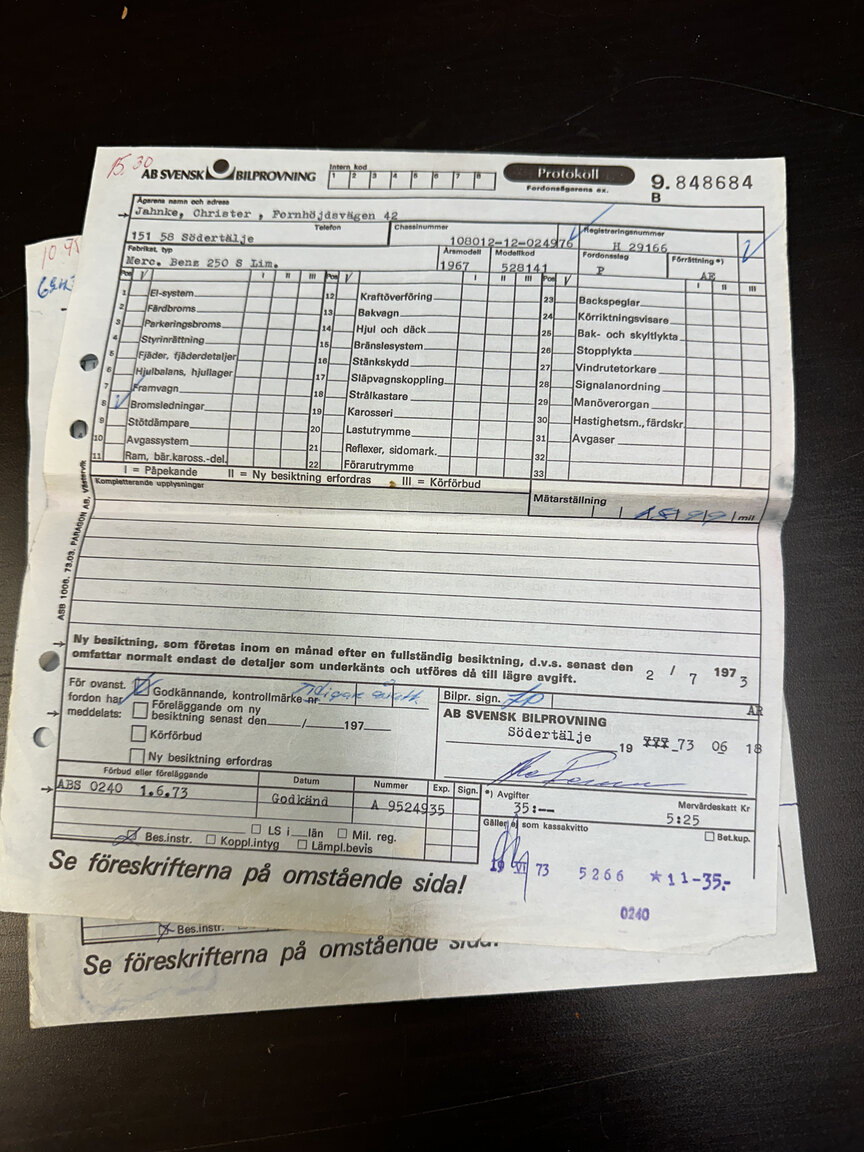 15.30
AB SVENSK BILPROVNING
Intern kod
1 2 3 4 5 6 7 8
Protokoll
Fordonsägarens ex.
9. 848684
B
Ägarens namn och adress
Jahnke, Christer , Fornhöjdsvägen 42
Telefon
Chassinummer
Registreringsnummer
151 58 Södertälje
108012-12-024976
H 29166
Fabrikat, typ
Årsmodell
Modellkod
Fordonsslag
Förrättning *)
Merc. Benz 250 S Lim.
1967
528141
P
AE
Pos V I II III Pos V I II III Pos V I II III
1 El-system
2 Färdbroms
3 Parkeringsbroms
4 Styrinrättning
5 Fjäder, fjäderdetaljer
6 Hjulbalans, hjullager
7 Framvagn
8 Bromsledningar
9 Stötdämpare
10 Avgassystem
11 Ram, bär.kaross.-del.
12 Kraftöverföring
13 Bakvagn
14 Hjul och däck
15 Bränslesystem
16 Stänkskydd
17 Släpvagnskoppling
18 Strålkastare
19 Karosseri
20 Lastutrymme
21 Reflexer, sidomark.
22 Förarutrymme
23 Backspeglar
24 Körriktningsvisare
25 Bak- och skyltlykta
26 Stopplykta
27 Vindrutetorkare
28 Signalanordning
29 Manöverorgan
30 Hastighetsm., färdskr.
31 Avgaser
32
33
I = Påpekande II = Ny besiktning erfordras III = Körförbud
Kompletterande upplysningar
Mätarställning
mil
ASB 1006. 73.03. PARAGON AB, Västervik
Ny besiktning, som företas inom en månad efter en fullständig besiktning, d.v.s. senast den
omfattar normalt endast de detaljer som underkänts och utföres då till lägre avgift.
2 / 7 1973
För ovanst. fordon har meddelats:
Godkännande, kontrollmärke nr
Föreläggande om ny
besiktning senast den / 197
Körförbud
Ny besiktning erfordras
Bilpr. sign.
AR
AB SVENSK BILPROVNING
Södertälje
19 73 06 18
Förbud eller föreläggande
Datum
Nummer
Exp.
Sign.
ABS 0240 1.6.73
Godkänd
A 9524935
*) Avgifter
Mervärdeskatt Kr
35:--
5:25
Gäller ej som kassakvitto
Bet.kup.
LS i län
Mil. reg.
Bes.instr.
Koppl.intyg
Lämpl.bevis
19 VI 73 5266 *11-35.-
0240
Se föreskrifterna på omstående sida!
Bes.instr.
Se föreskrifterna på omstående sida!